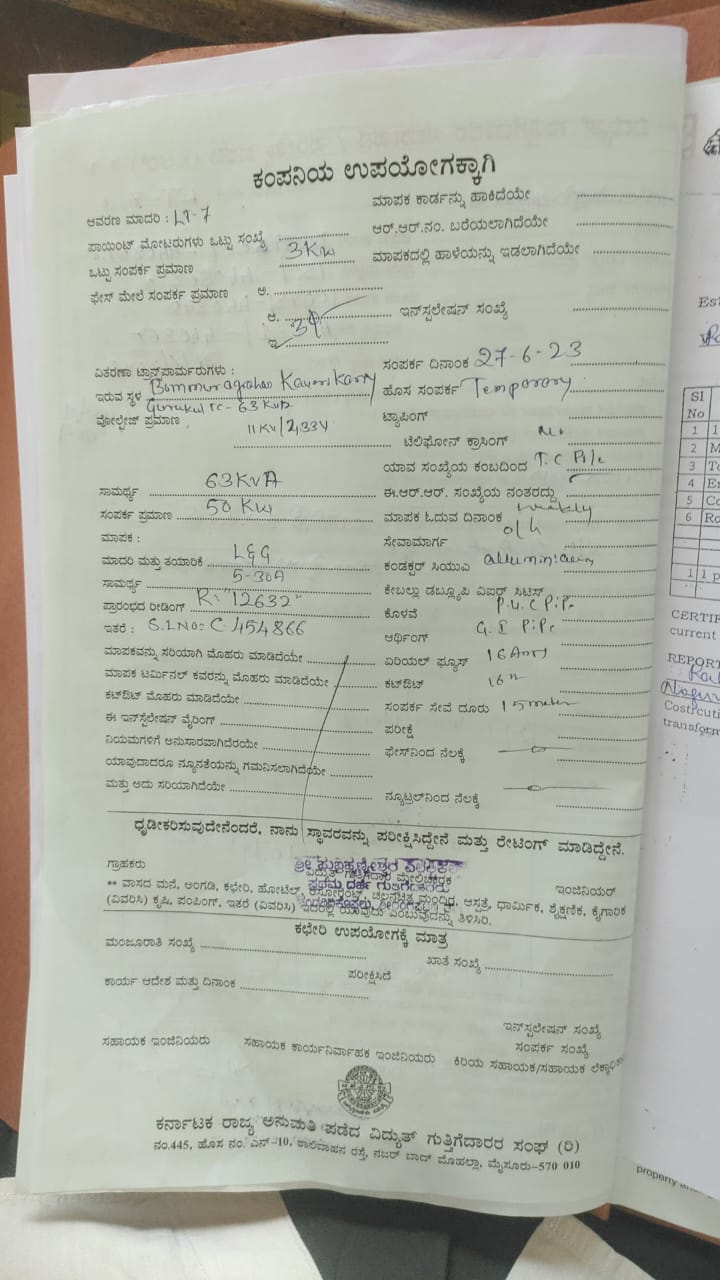 ಕಂಪನಿಯ ಉಪಯೋಗಕ್ಕಾಗಿ
ಆವರಣ ಮಾದರಿ : LT-7
ಪಾಯಿಂಟ್ ಮೋಟರುಗಳು ಒಟ್ಟು ಸಂಖ್ಯೆ
ಒಟ್ಟು ಸಂಪರ್ಕ ಪ್ರಮಾಣ 3KW
ಫೇಸ್ ಮೇಲೆ ಸಂಪರ್ಕ ಪ್ರಮಾಣ ಅ.
ಆ.
ಇ. 3φ
ವಿತರಣಾ ಟ್ರಾನ್ಸ್‌ಫಾರ್ಮರುಗಳು :
ಇರುವ ಸ್ಥಳ Bommuragrahar
Gurukul TC - 63 KVA
ವೋಲ್ಟೇಜ್ ಪ್ರಮಾಣ 11KV/
ಸಾಮರ್ಥ್ಯ 63KVA
ಸಂಪರ್ಕ ಪ್ರಮಾಣ 50 KW
ಮಾಪಕ :
ಮಾದರಿ ಮತ್ತು ತಯಾರಿಕೆ L&G
ಸಾಮರ್ಥ್ಯ 5-30A
ಪ್ರಾರಂಭದ ರೀಡಿಂಗ್ R: "12632"
ಇತರೆ : S.L No: C 454866
ಮಾಪಕವನ್ನು ಸರಿಯಾಗಿ ಮೊಹರು ಮಾಡಿದೆಯೇ
ಮಾಪಕ ಟರ್ಮಿನಲ್ ಕವರನ್ನು ಮೊಹರು ಮಾಡಿದೆಯೇ
ಕಟ್‌ಔಟ್ ಮೊಹರು ಮಾಡಿದೆಯೇ
ಈ ಇನ್‌ಸ್ಟಲೇಷನ್ ವೈರಿಂಗ್
ನಿಯಮಗಳಿಗೆ ಅನುಸಾರವಾಗಿದೆರೆಯೇ
ಯಾವುದಾದರೂ ನ್ಯೂನತೆಯನ್ನು ಗಮನಿಸಲಾಗಿದೆಯೇ
ಮತ್ತು ಅದು ಸರಿಯಾಗಿದೆಯೇ
ಮಾಪಕ ಕಾರ್ಡನ್ನು ಹಾಕಿದೆಯೇ
ಆರ್.ಆರ್.ನಂ. ಬರೆಯಲಾಗಿದೆಯೇ
ಮಾಪಕದಲ್ಲಿ ಹಾಳೆಯನ್ನು ಇಡಲಾಗಿದೆಯೇ
ಇನ್‌ಸ್ಟಲೇಷನ್ ಸಂಖ್ಯೆ
ಸಂಪರ್ಕ ದಿನಾಂಕ 27-6-23
ಹೊಸ ಸಂಪರ್ಕ Temporory
ಟ್ಯಾಪಿಂಗ್
ಟೆಲಿಫೋನ್ ಕ್ರಾಸಿಂಗ್ No
ಯಾವ ಸಂಖ್ಯೆಯ ಕಂಬದಿಂದ T.C
ಈ.ಆರ್.ಆರ್. ಸಂಖ್ಯೆಯ ನಂತರದ್ದು
ಮಾಪಕ ಓದುವ ದಿನಾಂಕ
ಸೇವಾಮಾರ್ಗ o/h
ಕಂಡಕ್ಟರ್ ಸಿಯುಎ
ಕೇಬಲ್ಲು ಡಬ್ಲ್ಯೂಪಿ ವಿಐಆರ್ ಸಿಟಿಸ್
ಕೊಳವೆ P.V.C Pipe
ಅರ್ಥಿಂಗ್ G.I Pipe
ಏರಿಯಲ್ ಫ್ಯೂಸ್ 16 Amps
ಕಟ್‌ಔಟ್ 16 "
ಸಂಪರ್ಕ ಸೇವೆ ದೂರು 15 meter
ಪರೀಕ್ಷೆ
ಫೇಸ್‌ನಿಂದ ನೆಲಕ್ಕೆ
ನ್ಯೂಟ್ರಲ್‌ನಿಂದ ನೆಲಕ್ಕೆ
ಧೃಡೀಕರಿಸುವುದೇನೆಂದರೆ, ನಾನು ಸ್ಥಾವರವನ್ನು ಪರೀಕ್ಷಿಸಿದ್ದೇನೆ ಮತ್ತು ರೇಟಿಂಗ್ ಮಾಡಿದ್ದೇನೆ.
ಗ್ರಾಹಕರು
ವಿದ್ಯುತ್ ಗುತ್ತಿಗೆದಾರ ಮೇಲಿಚಾರಕ
ಪ್ರಥಮ ದರ್ಜೆ ಗುತ್ತಿಗೆದಾರರು
ಇಂಜಿನಿಯರ್
** ವಾಸದ ಮನೆ, ಅಂಗಡಿ, ಕಛೇರಿ, ಹೋಟೆಲ್, ರೆಸ್ಟೋರೆಂಟ್, ಚಲನಚಿತ್ರ ಮಂದಿರ, ಆಸ್ಪತ್ರೆ, ಧಾರ್ಮಿಕ, ಶೈಕ್ಷಣಿಕ, ಕೈಗಾರಿಕ
(ವಿವರಿಸಿ) ಕೃಷಿ, ಪಂಪಿಂಗ್, ಇತರೆ (ವಿವರಿಸಿ) ಇದರಲ್ಲಿ ಯಾವುದು ಎಂಬುವುದನ್ನು ತಿಳಿಸಿರಿ.
ಕಛೇರಿ ಉಪಯೋಗಕ್ಕೆ ಮಾತ್ರ
ಮಂಜೂರಾತಿ ಸಂಖ್ಯೆ
ಖಾತೆ ಸಂಖ್ಯೆ
ಪರೀಕ್ಷಿಸಿದೆ
ಕಾರ್ಯ ಆದೇಶ ಮತ್ತು ದಿನಾಂಕ
ಇನ್‌ಸ್ಟಲೇಷನ್ ಸಂಖ್ಯೆ
ಸಂಪರ್ಕ ಸಂಖ್ಯೆ
ಸಹಾಯಕ ಇಂಜಿನಿಯರು ಸಹಾಯಕ ಕಾರ್ಯನಿರ್ವಾಹಕ ಇಂಜಿನಿಯರು ಕಿರಿಯ ಸಹಾಯಕ/ಸಹಾಯಕ
ಕರ್ನಾಟಕ ರಾಜ್ಯ ಅನುಮತಿ ಪಡೆದ ವಿದ್ಯುತ್ ಗುತ್ತಿಗೆದಾರರ ಸಂಘ (ರಿ)
ನಂ.445, ಹೊಸ ನಂ. ಎನ್-10, ಶಾಲಿವಾಹನ ರಸ್ತೆ, ನಜರ್ ಬಾದ್ ಮೊಹಲ್ಲಾ, ಮೈಸೂರು-570 010
Sl
No
1
2
3
4
5
6
CERTIF
current
REPORT
transform
property